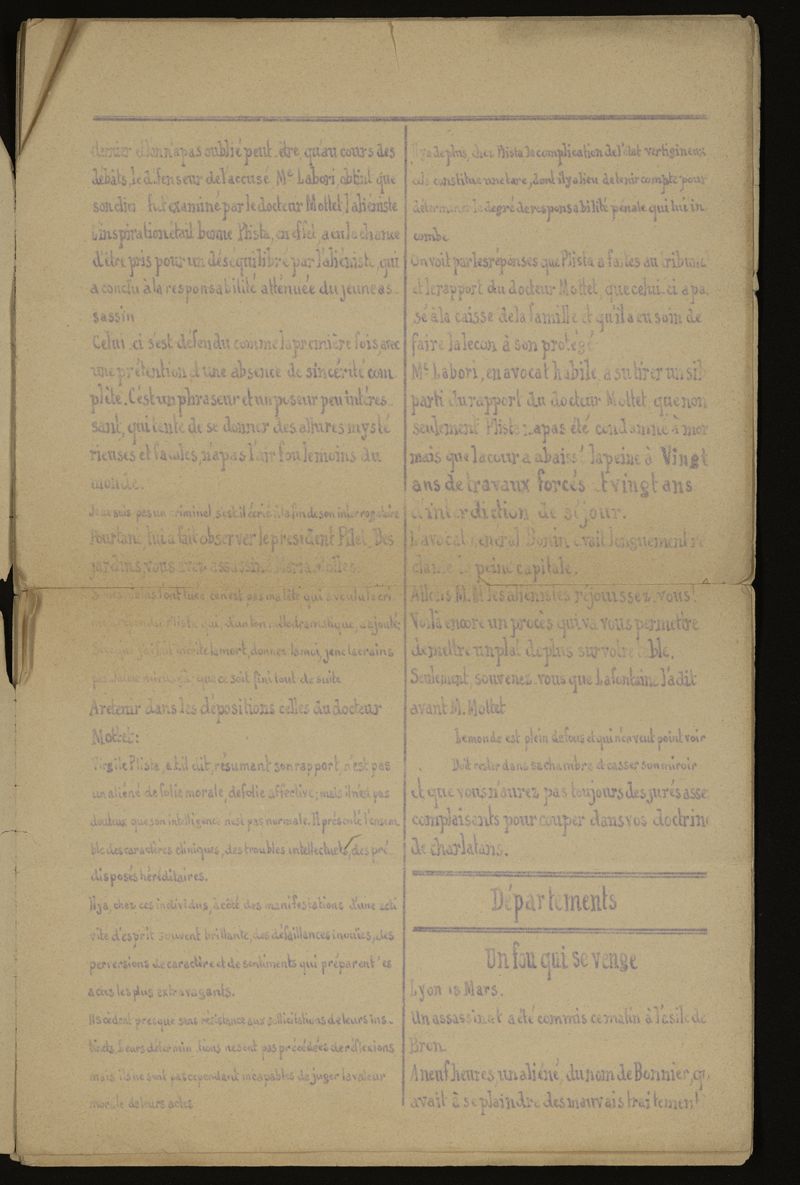 dernier et l'on n'a pas oublié peut-être, qu'au cours des
débats, le défenseur de l'accusé Me Labori, obtint que
son client fut examiné par le docteur Mottet l'aliéniste
L'inspiration était bonne Plista, en effet a eu la chance
d'être pris pour un déséquilibré par l'aliéniste, qui
a conclu à la responsabilité atténuée du jeune as-
sassin
Celui-ci s'est défendu comme la première fois avec
une prétention et une absence de sincérité com
plète. C'est un phraseur et un poseur peu intéres-
sant, qui tente de se donner des allures mysté
rieuses et fatales, n'a pas l'air fou le moins du
monde.
Je ne suis pas un criminel s'est il écrié à la fin de son interrogatoire
Pourtant lui a fait observer le président Pilet Des
jardins, vous avez assassiné
l'ont tuée ce n'est pas ma
Plista qui, d'un ton mélodramatique, a ajouté:
mérite la mort, donnez la moi, je ne la crains
pas que ce soit fini tout de suite
A retenir dans les dépositions celles du docteur
Mottet:
Virgile Plista, a t.il dit, résumant son rapport, n'est pas
un aliéné de folie morale, de folie affective; mais il n'est pas
douteux que son intelligence n'est pas normale. Il présente l'ensem
ble des caractères cliniques, des troubles intellectuels, des pré
disposés héréditaires.
Il y a, chez ces individus, à côté des manifestations d'une acti
vité d'esprit souvent brillante, des défaillances inouïes, des
perversions de caractère et de sentiments qui préparent les
actes les plus extravagants.
Ils cèdent presque sans résistance aux sollicitations de leurs ins-
tincts. Leurs déterminations ne sont pas précédées de réflexions
mais ils ne sont pas cependant incapables de juger la valeur
morale de leurs actes
Il y a de plus, chez Plista la complication de l'état vertigineux
cela constitue une tare, dont il y a lieu de tenir compte pour
déterminer le degré de responsabilité pénale qui lui in
combe
On voit par les réponses que Plista a faites au tribunal
et le rapport du docteur Mottet, que celui-ci a pas
sé à la caisse de la famille et qu'il a eu soin de
faire la leçon à son protégé
Me Labori, en avocat habile, a su tirer un si bl
parti du rapport du docteur Mottet que non
seulement Plista n'a pas été condamné à mor
mais que la cour a abaissé la peine à Vingt
ans de travaux forcés et vingt ans
d'interdiction de séjour.
L'avocat général Bonin avait longuement ré
clamé la peine capitale.
Allons M.M les aliénistes réjouissez-vous!
Voilà encore un procès qui va vous permettre
de mettre un plat de plus sur votre table.
Seulement, souvenez-vous que Lafontaine l'a dit
avant M. Mottet
Le monde est plein de fous et qui n'en veut point voir
Doit rester dans sa chambre et casser son miroir
et que vous n'aurez pas toujours des jurés asse
complaisants pour couper dans vos doctrine
de charlatans.
Départements
Un fou qui se venge
Lyon 15 Mars.
Un assassinat a été commis ce matin à l'asile de
Bron
A neuf heures un aliéné, du nom de Bonnier, qu
avait à se plaindre des mauvais traitement